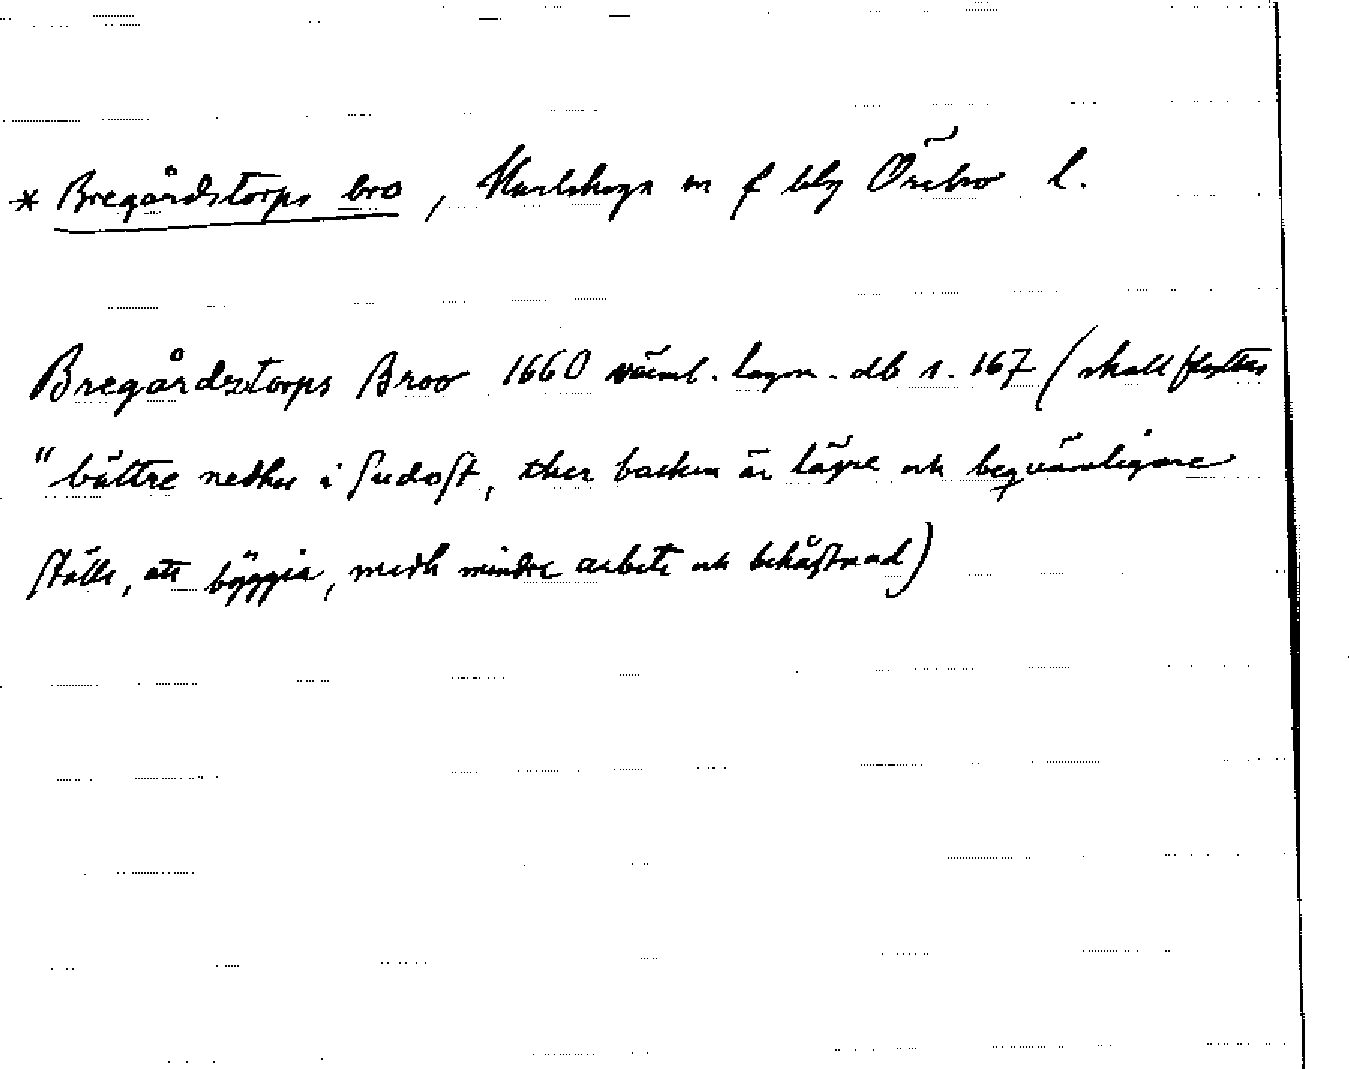 * Bregårdstorps bro, Karlskoga sn f bbg Örebro l.
Bregårdztorps Broo 1660 värml. lagm. db s. 167 (skall flyttas
"bättre nedher i sudost, ther backen är lägre och beqvämligare
ställe, att byggia, medh mindre arbete och bekåstnad)